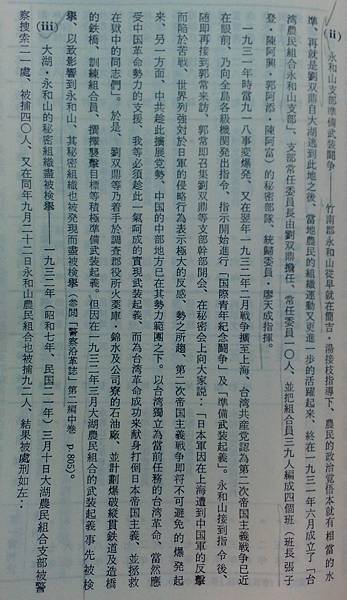 (ii) 永和山支部準備武裝鬪爭——竹南郡永和山從早就在簡吉・湯接枝指導下、農民的政治覺悟本就有相當的水
準、再就是劉双鼎自大湖逃到此地之後、當地農民的組織運動又更進一步的活躍起來、終在一九三一年六月成立了「台
湾農民組合永和山支部」、支部常任委員長由劉双鼎擔任、常任委員一〇人、並把組合員三九人編成四個班(班長張子
登・陳阿興・郭阿添・陳阿富)的秘密部隊、統歸委員・廖天成指揮。
一九三一年時當九一八事変爆発、又在翌年一九三二年一月戦爭擴至上海、台湾共産党認為第二次帝国主義戦爭已近
在眼前、乃向全島各級機関発出指令、指示開始進行「国際青年紀念鬪爭」及「準備武裝起義」。永和山接到指令後、
随即再接到郭常来訪、郭常即召集劉双鼎等支部幹部開会、在秘密会上向大家説:「日本軍因在上海遭到中国軍的反擊
而陷於苦戦、世界列強対於日軍的侵略行為表示極大的反感、勢之所趨、第二次帝国主義戦爭即将不可避免的爆発起
来、另一方面、中共趁此擴展党勢、中国的中部地方已在其勢力範圍之下。以台湾獨立為當前任務的台湾革命、當然應
受中国革命勢力的支援、我等必須趁此一氣呵成的實現武裝起義、而為台湾革命成功来献身打倒日本帝国主義、並拯救
在獄中的同志們」。於是、劉双鼎等乃着手於調査郡役所火薬庫・錦水及公司寮的石油廠、並計劃爆破縦貫鉄道及造橋
的鉄橋、訓練組合員、選擇襲擊目標等積極準備武裝起義。但因在一九三二年三月大湖農民組合的武裝起義事先被検
擧、以致影響到永和山、其秘密組織也被発現而盡被検擧(参閲『警察沿革誌』第二編中巻 p.805)。
(iii) 大湖・永和山的秘密組織盡被検擧——一九三二年(昭和七年、民国二一年)三月十日大湖農民組合支部被警
察搜索二一處、被捕四〇人、又在同年九月二十二日永和山農民組合也被捕九二人、結果被處刑如左: